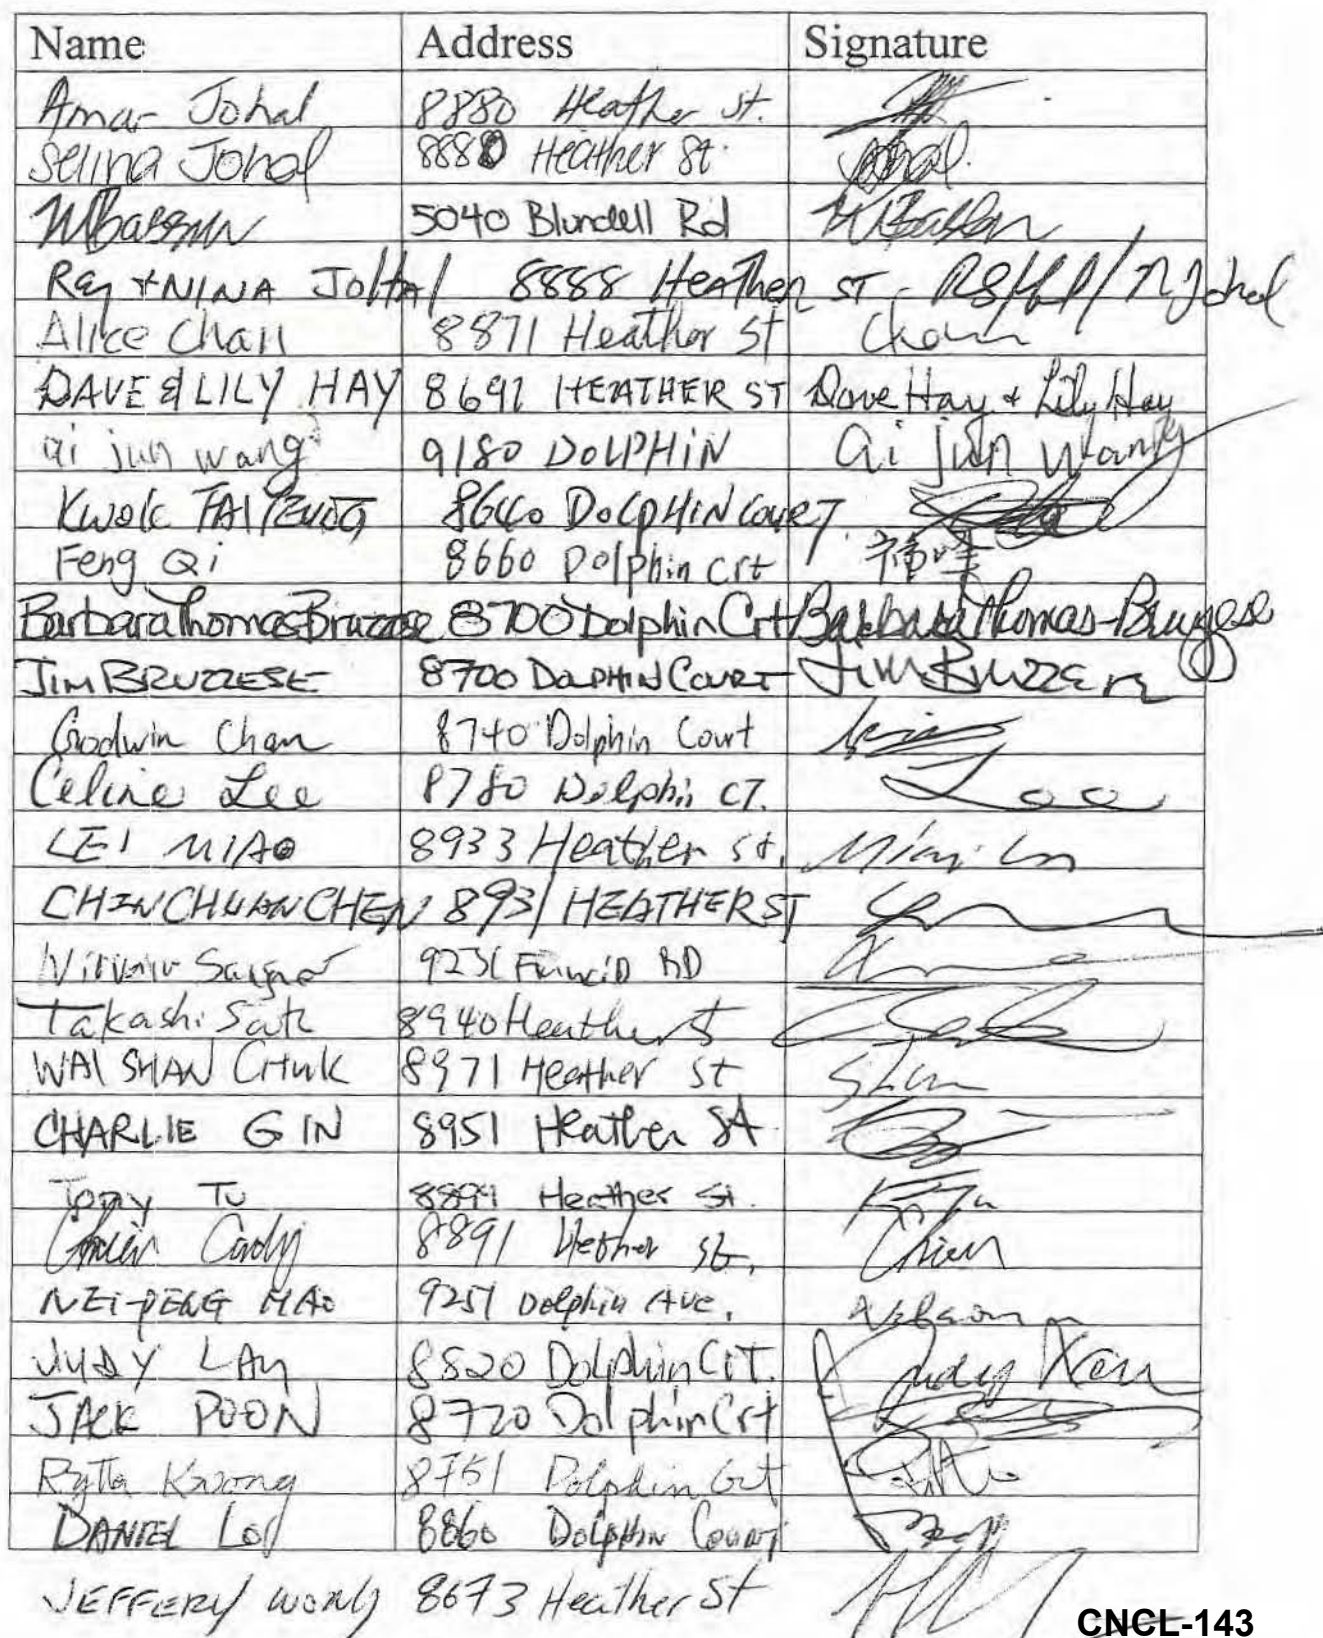 Name Address Signature
Amar Johal 8880 Heather St.
Selina Johal 8880 Heather St. Johal.
5040 Blundell Rd
Ray + NINA JOHAL 8888 Heather ST - NJohal
Alice Chan 8871 Heather St Chan
DAVE & LILY HAY 8691 HEATHER ST Dave Hay + Lily Hay
qi jun wang 9180 DOLPHIN Qi jun wang
KWOK TAI 8640 DOLPHIN COURT
Feng Qi 8660 Dolphin crt
Barbara Thomas-Bruzzese 8700 Dolphin Crt Barbara Thomas-Bruzzese
JIM BRUZZESE 8700 DOLPHIN COURT Jim Bruzzese
Godwin Chan 8740 Dolphin Court
Celine Lee 8780 Dolphin CT. Lee
LEI MIAO 8933 Heather St.
CHIN CHUAN CHEN 8931 HEATHER ST
RD
Takashi Sato 8940 Heather St
WAI SHAN CHUK 8971 Heather St Shan
CHARLIE GIN 8951 Heather St
Tony Tu 8899 Heather St.
Cindy 8891 Hether St. Chien
NEI-PENG MAO 9251 Dolphin Ave.
JUDY LAU 8820 Dolphin CrT. Judy
JACK POON 8720 Dolphin Crt
Ryta Kwong 8751 Dolphin Crt
DANIEL 8860 Dolphin Court
JEFFERY WONG 8673 Heather St
CNCL-143